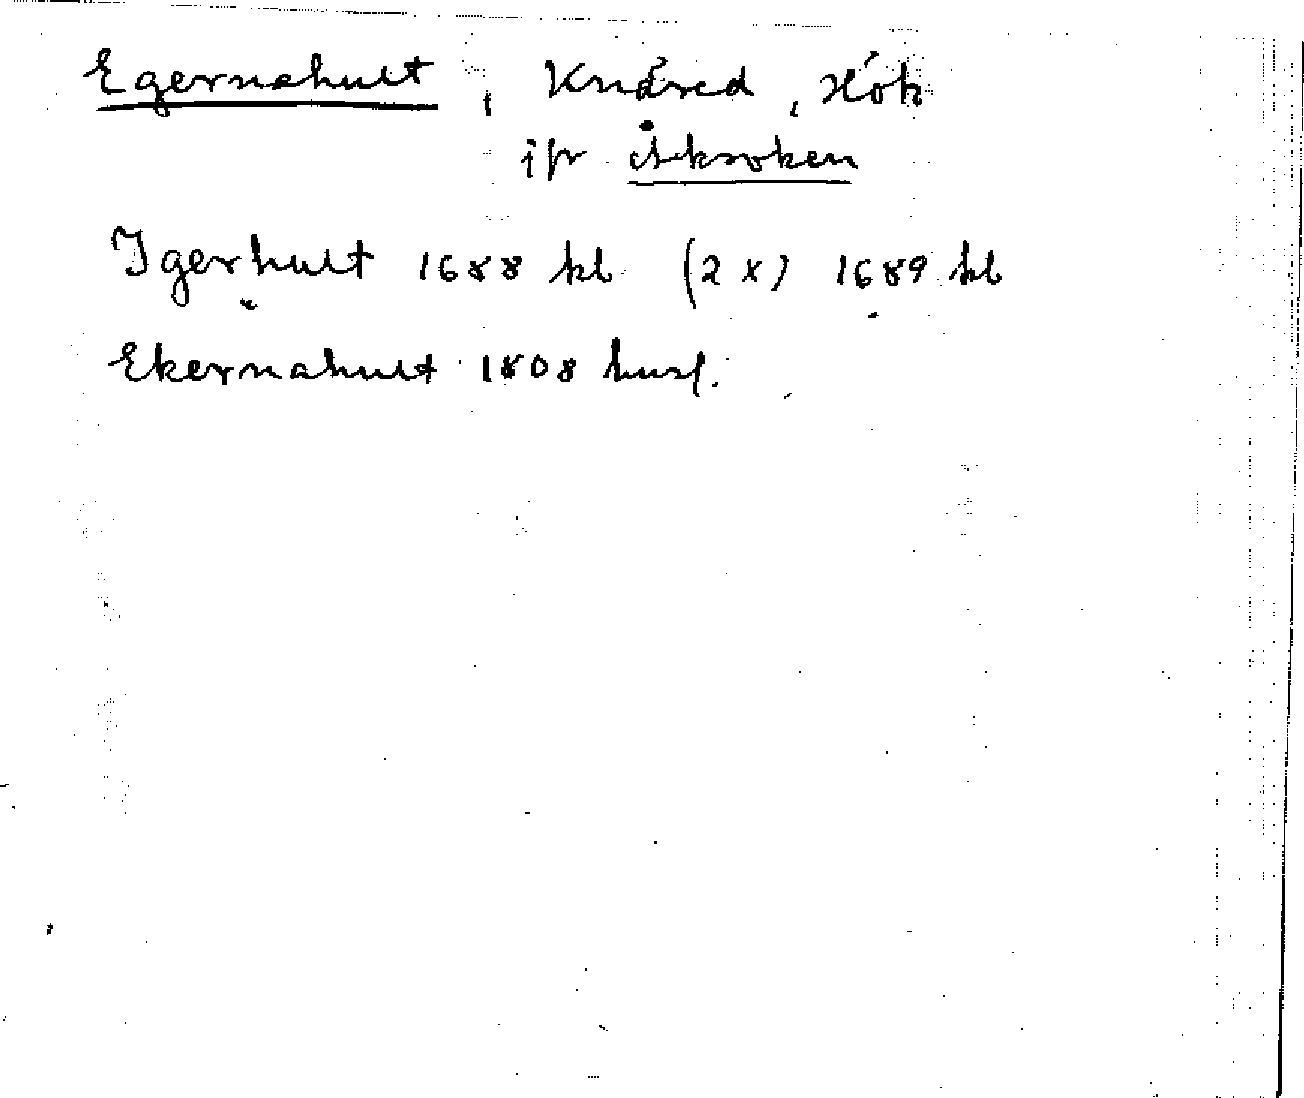 Egernahult, Knäred, Hök
jfr Åksoken
Igerhult 1688 kl (2 x) 1689 kl
Ekernahult 1808 husf.